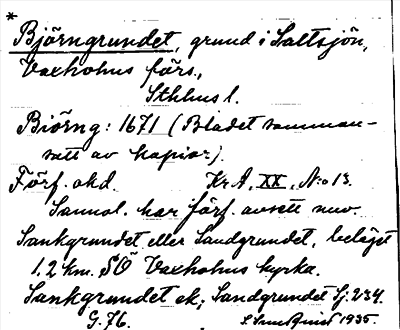 *
Björngrundet, grund i Saltsjön,
Vaxholmsförs.,
Sthlms l.
Biörng: 1671 (Bladet samman-
satt av kopior).
Förf. okd. Kr.A, XX, N:o 13.
Sannol. har förf. avsett nuv.
Sankgrundet eller Sandgrundet, beläget
1.2 km. SÖ Vaxholms kyrka.
Sankgrundet ek; Sandgrundet Sj. 234.
G. 76. 1935.